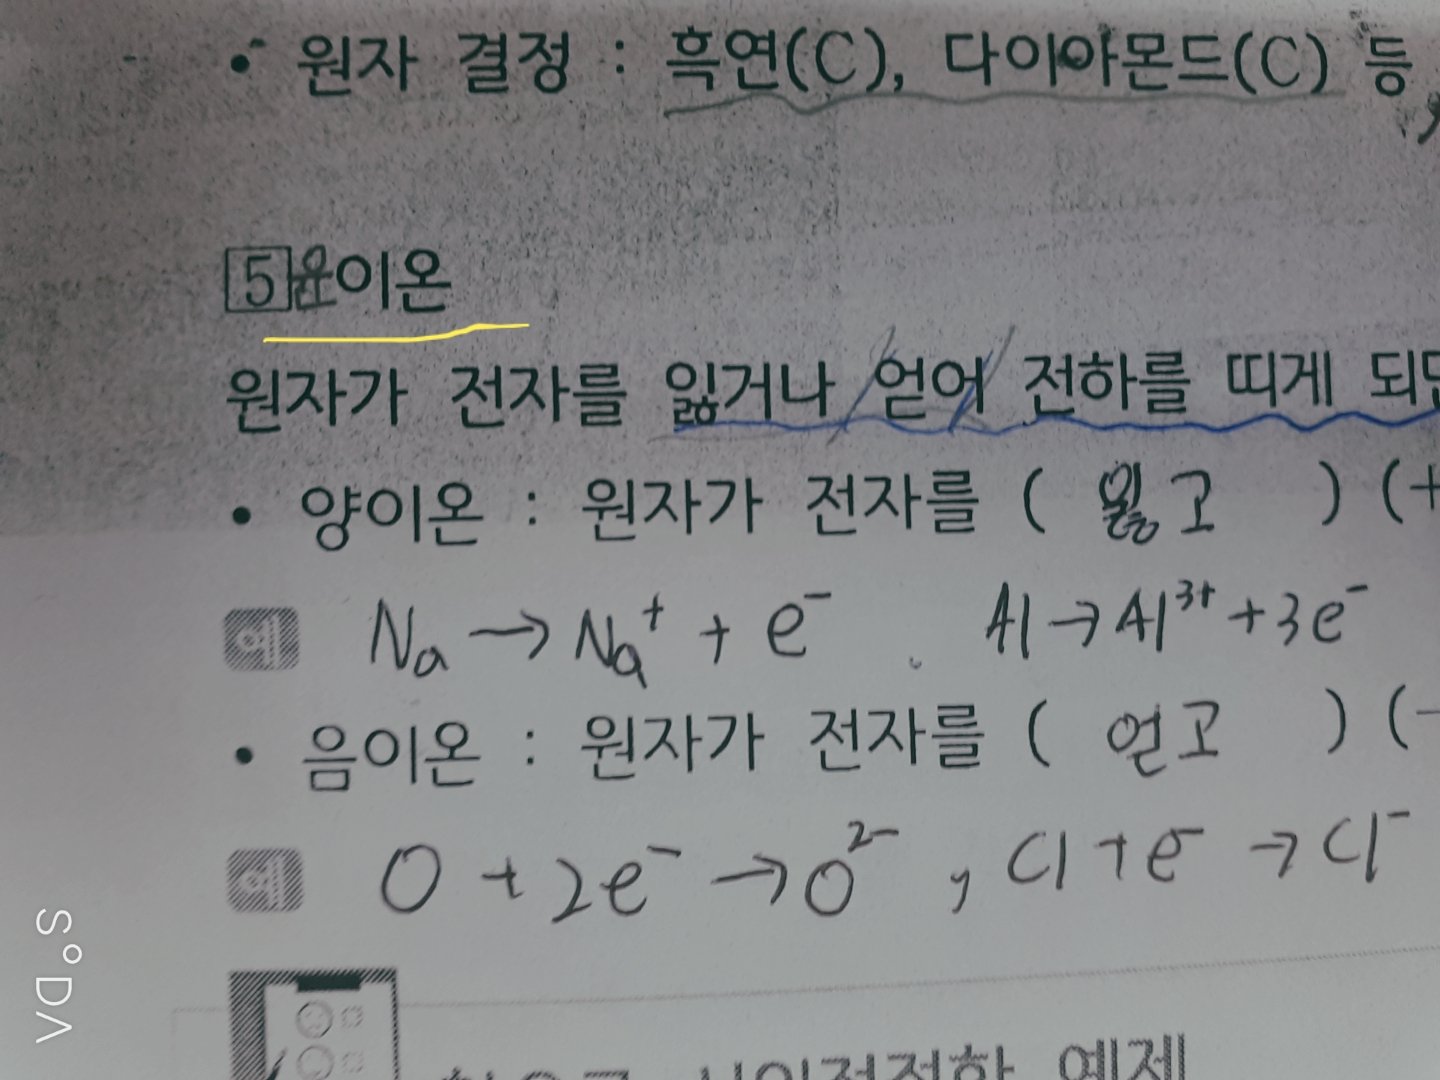 • 원자 결정 : 흑연(C), 다이아몬드(C) 등
5 윤이온
원자가 전자를 잃거나 얻어 전하를 띠게
• 양이온 : 원자가 전자를 ( 잃고 ) (+
예 Na → Na⁺ + e⁻ . Al → Al³⁺ + 3e⁻
• 음이온 : 원자가 전자를 ( 얻고 ) (-
예 O + 2e⁻ → O²⁻ , Cl + e⁻ → Cl⁻
예제